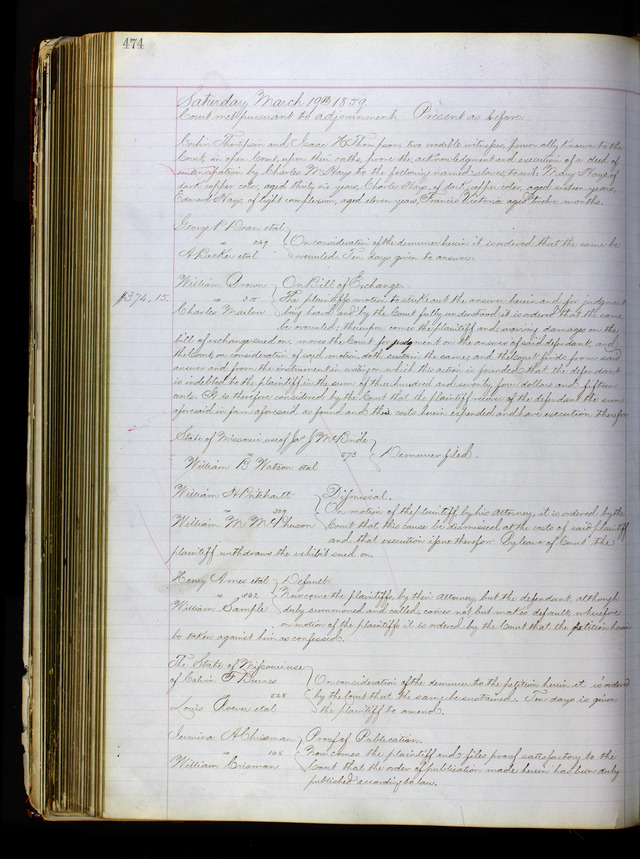 474
Saturday March 19th 1859
Court met pursuant to adjournment. Present as before.
Thompson and Isaac H Thompson, two credible witnesses, personally known to the
Court, in open Court, upon their oaths, prove the acknowledgment and execution of a deed of
emancipation by Charles M Hays to the following named slaves to wit: Mary Hays, of
dark copper color, aged thirty six years, Charles Hays, of dark copper color, aged sixteen years,
Edward Hays, of light complexion, aged eleven years, Francis Victoria aged twelve months.
George P Doan etal
vs 249 On consideration of the demurrer herein it is ordered that the same be
A Becker etal overruled. Ten days given to answer.
William Brown On Bill of Exchange.
$374.15. vs The plaintiffs motion to strike out the answer herein and for judgment
Charles Marlow being heard and by the Court fully understood it is ordered that the same
be overruled; thereupon comes the plaintiff and waiving damages on the
bill of exchange sued on, moves the Court for judgment on the answer of said defendant, and
the Court on consideration of said motion doth sustain the same; and the Court finds from said
answer and from the instrument in writing on which this action is founded, that the defendant
is indebted to the plaintiff in the sum of three hundred and seventy four dollars and fifteen
cents. It is therefore considered by the Court that the plaintiff recover of the defendant the sum
aforesaid in form aforesaid as found and his costs herein expended and have execution therefor
State of Missouri use of Jas J McBride
vs 573 Demurrer filed.
William B Watson etal
William H Pritchartt Dismissal.
vs 309 On motion of the plaintiff by his Attorney, it is ordered by the
William M McPherson Court that this cause be dismissed at the costs of said plaintiff
and that execution issue therefor. By leave of Court the
plaintiff withdraws the exhibit sued on.
Henry Ames etal Default
vs 462 Now come the plaintiffs by their Attorney, but the defendant, although
William Sample duly summoned and called, comes not but makes default, wherefore
on motion of the plaintiff it is ordered by the Court that the petition herein
be taken against him as confessed.
The State of Missouri use
of Calvin F Burnes On consideration of the demurrer to the petition herein it is ordered
vs 528 by the Court that the same be sustained. Ten days is given
Louis etal the plaintiff to amend.
Jemima A Chrisman Proof of Publication.
vs 108 Now comes the plaintiff and files proof satisfactory to the
William Crisman Court that the order of publication made herein has been duly
published according to law.